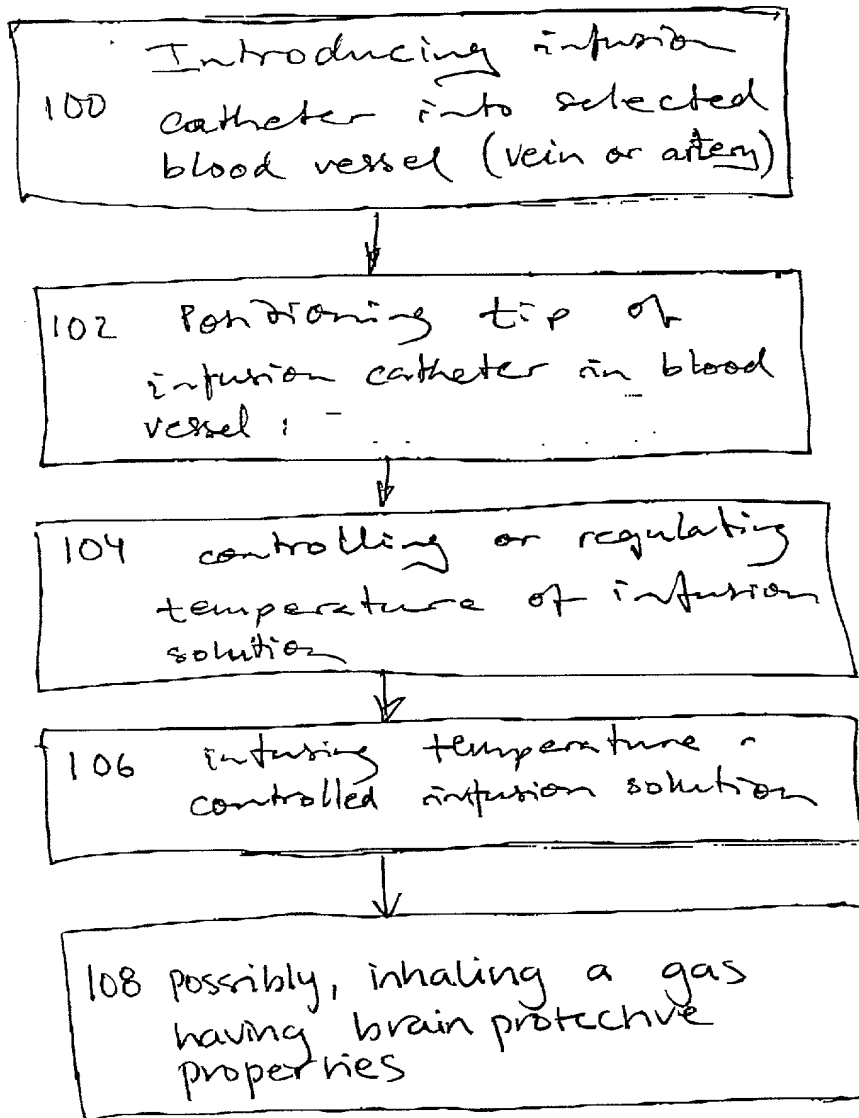 100 Introducing infusion
catheter into selected
blood vessel (vein or artery)
102 Positioning tip of
infusion catheter in blood
vessel
104 controlling or regulating
temperature of infusion
solution
106 infusing temperature -
controlled infusion solution
108 possibly, inhaling a gas
having brain protective
properties